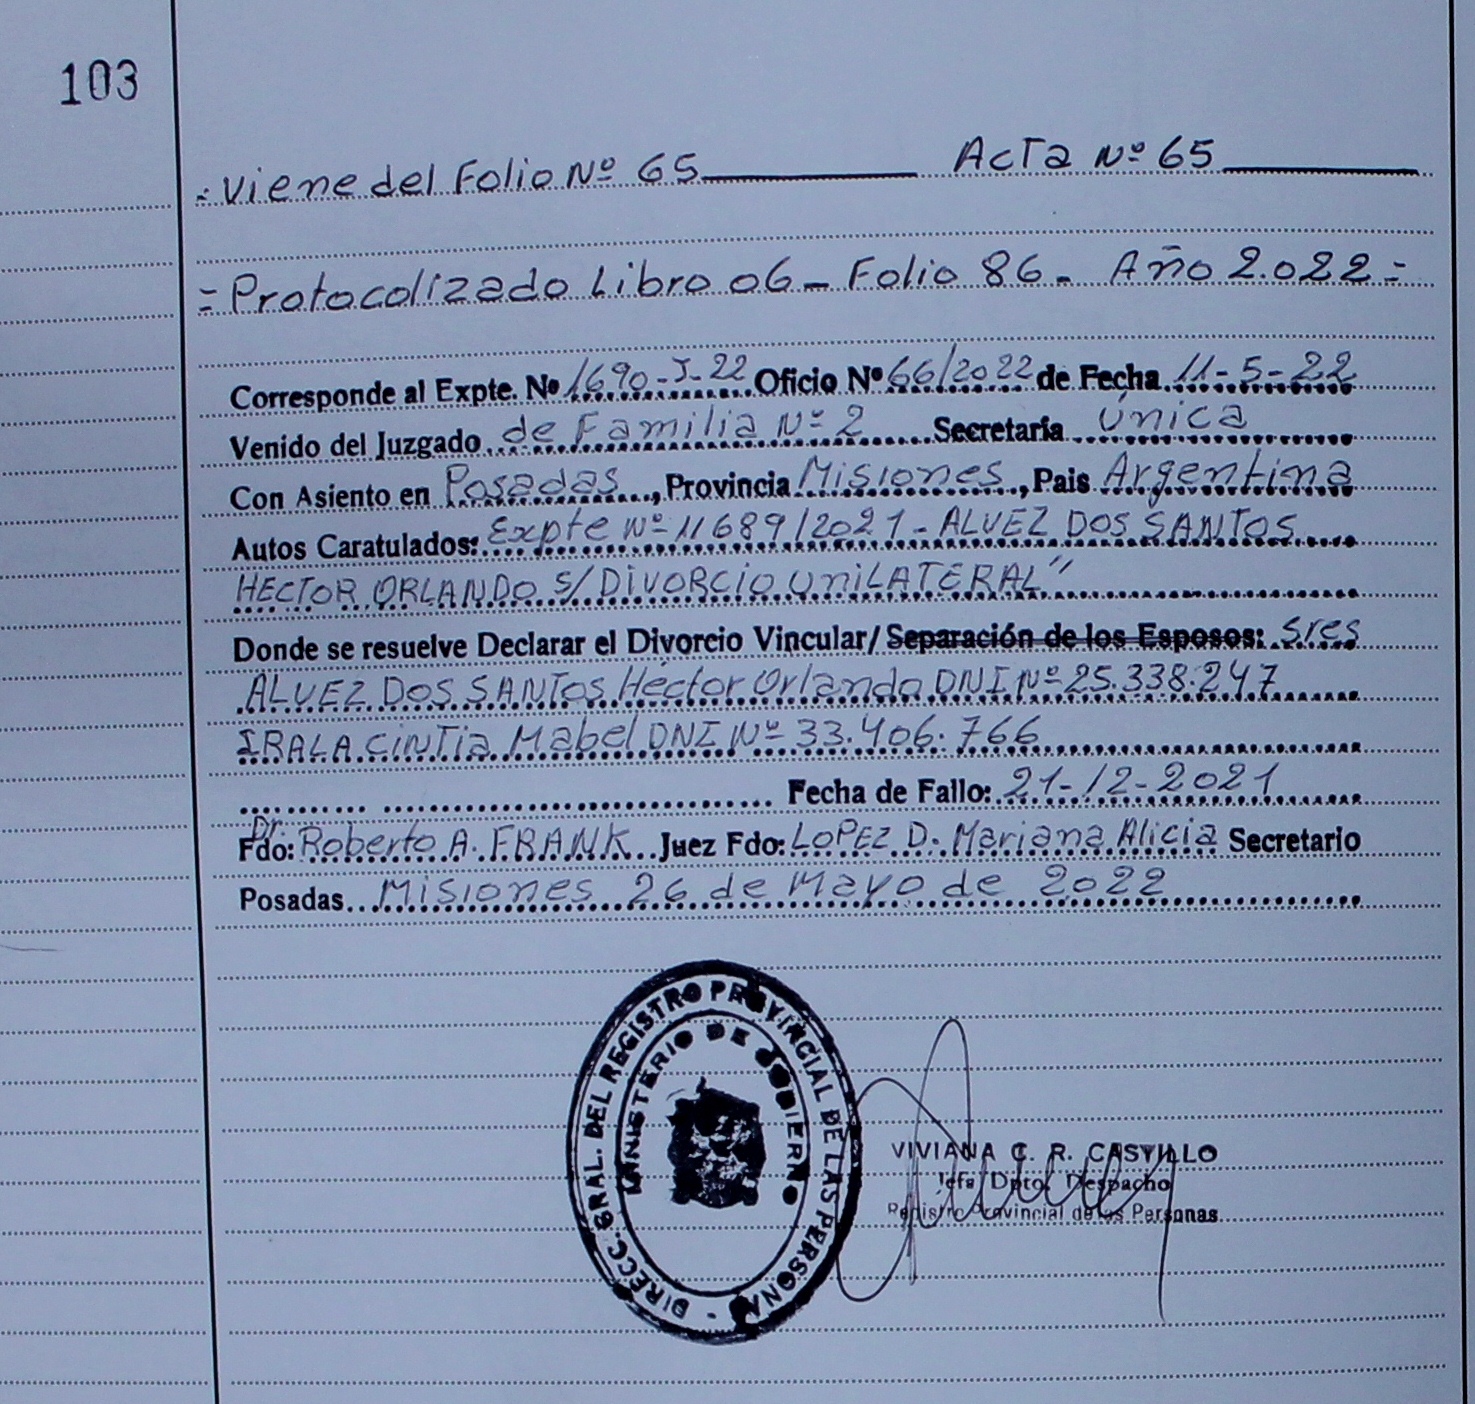 103
=Viene del Folio Nº 65 Acta Nº 65
=Protocolizado Libro 06 - Folio 86 - Año 2.022=
Corresponde al Expte. Nº 1690-J-22 Oficio Nº 66/2022 de Fecha 11-5-22
Venido del Juzgado de Familia Nº 2 Secretaría Única
Con Asiento en Posadas, Provincia Misiones, Pais Argentina
Autos Caratulados: Expte Nº 11689/2021 - ALVEZ DOS SANTOS
HECTOR ORLANDO S/DIVORCIO UNILATERAL"
Donde se resuelve Declarar el Divorcio Vincular/ Separación de los Esposos: Sres
ALVEZ DOS SANTOS Héctor Orlando DNI Nº 25.338.247
IRALA CINTIA Mabel DNI Nº 33.406.766
Fecha de Fallo: 21-12-2021
Fdo: Dr. Roberto A. FRANK Juez Fdo: LOPEZ D. Mariana Alicia Secretario
Posadas Misiones 26 de Mayo de 2022
DIRECC. GRAL. DEL REGISTRO PROVINCIAL DE LAS PERSONAS
MINISTERIO DE GOBIERNO
VIVIANA C. R. CASTILLO
Jefa Dpto. Despacho
Registro Provincial de las Personas